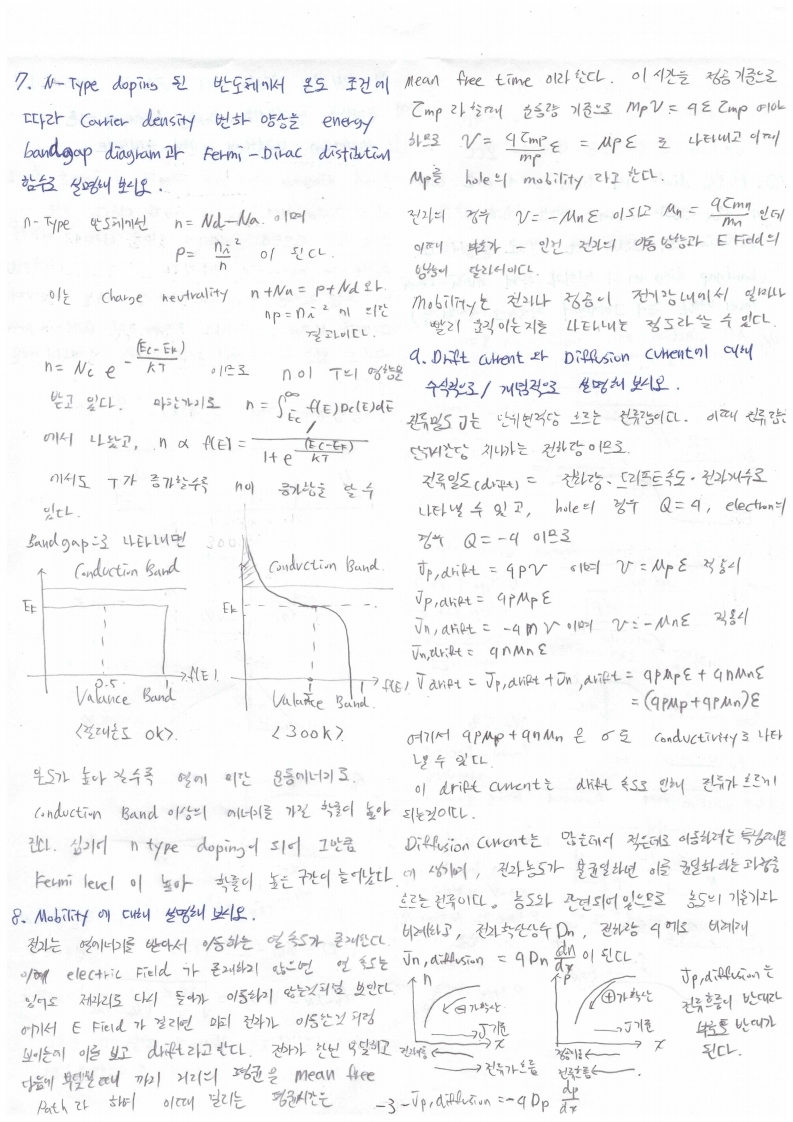 7. N-Type doping 된 반도체에서 온도 조건에
따라 Carrier density 변화 양상을 energy
bandgap diagram과 Fermi-Dirac distibution
함수로 설명해 보시오.
n-Type 반도체에선 n = Nd-Na 이며
p = ni²/n 이 된다.
이는 charge neutrality n+Na = p+Nd 와
np = ni² 에 의한
결과이다.
n = Nc e^-(Ec-EF)/kT 이므로 n이 T의 영향을
받고 있다. 마찬가지로 n = ∫Ec^∞ f(E)Dc(E)dE
에서 나왔고, n ∝ f(E) = 1/(1+e^(Ec-EF)/kT)
에서도 T가 증가할수록 n이 증가함을 알 수
있다.
Bandgap으로 나타내면
Conduction Band
EF
0.5 1 f(E)
Valance Band
<절대온도 0K>
Conduction Band
EF
f(E)
Valance Band
<300K>
온도가 높아 질수록 열에 의한 운동에너지로
Conduction Band 이상의 에너지를 가질 확률이 높아
진다. 심지어 n type doping이 되어 그만큼
Fermi level 이 높아 확률이 높은 구간이 늘어난다.
8. Mobility 에 대해 설명해 보시오.
전자는 열에너지를 받아서 이동하는 열 속도가 존재한다.
이때 electric Field 가 존재하지 않으면 열 속도는
있어도 제자리로 다시 돌아가 이동하지 않는것처럼 보인다.
여기서 E Field 가 걸리면 마치 전자가 이동한것 처럼
보이는데 이를 보고 drift라고 한다. 전자가 한번 충돌하고
다음에 충돌할 때 까지 거리의 평균을 mean free
Path라 하며 이때 걸리는 평균시간은
mean free time 이라 한다. 이 시간을 정공 기준으로
τmp 라 할때 운동량 기준으로 MpV = qEτmp 여야
하므로 V = qτmp/mp E = μpE 로 나타내고 이때
μp를 hole의 mobility 라고 한다.
전자의 경우 V = -μnE 이되고 μn = qτmn/mn 인데
이때 부호가 - 인건 전자의 이동 방향과 E Field의
방향이 달라서이다.
Mobility는 전자나 정공이 전기장내에서 얼마나
빨리 움직이는지를 나타내는 정도라 할 수 있다.
9. Drift current 와 Diffusion current에 대해
수식적으로/ 개념적으로 설명해 보시오.
전류밀도 J는 단위면적당 흐르는 전류량이다. 이때 전류량은
단위시간당 지나가는 전하량 이므로
전류밀도(drift) = 전하량·드리프트속도·전자개수로
나타낼 수 있고, hole의 경우 Q = q, electron의
경우 Q = -q 이므로
Jp,drift = qpV 이며 V = μpE 적용시
Jp,drift = qpμpE
Jn,drift = -qnV 이며 V = -μnE 적용시
Jn,drift = qnμnE
Jdrift = Jp,drift + Jn,drift = qpμpE + qnμnE
= (qpμp+qpμn)E
여기서 qpμp+qnμn 은 σ로 conductivity로 나타
낼 수 있다.
이 drift current는 drift 속도로 인해 전류가 흐르게
되는것이다.
Diffusion Current는 많은데에서 적은데로 이동하려는
에 생기며, 전자농도가 불균일하면 이를 균일화하는 과정중
흐르는 전류이다. 농도와 관련되어 있으므로 농도의 기울기와
비례하고, 전자확산상수 Dn, 전하량 q에도 비례해
Jn,diffusion = qDn dn/dx 이 된다.
n
⊖가 확산
J기준
x
전자이동
전류가 흐름
p
⊕가 확산
J기준
x
정공이동
전류흐름
Jp,diffusion은
전류흐름이 반대라
부호도 반대가
된다.
Jp,diffusion = -qDp dp/dx
-3-